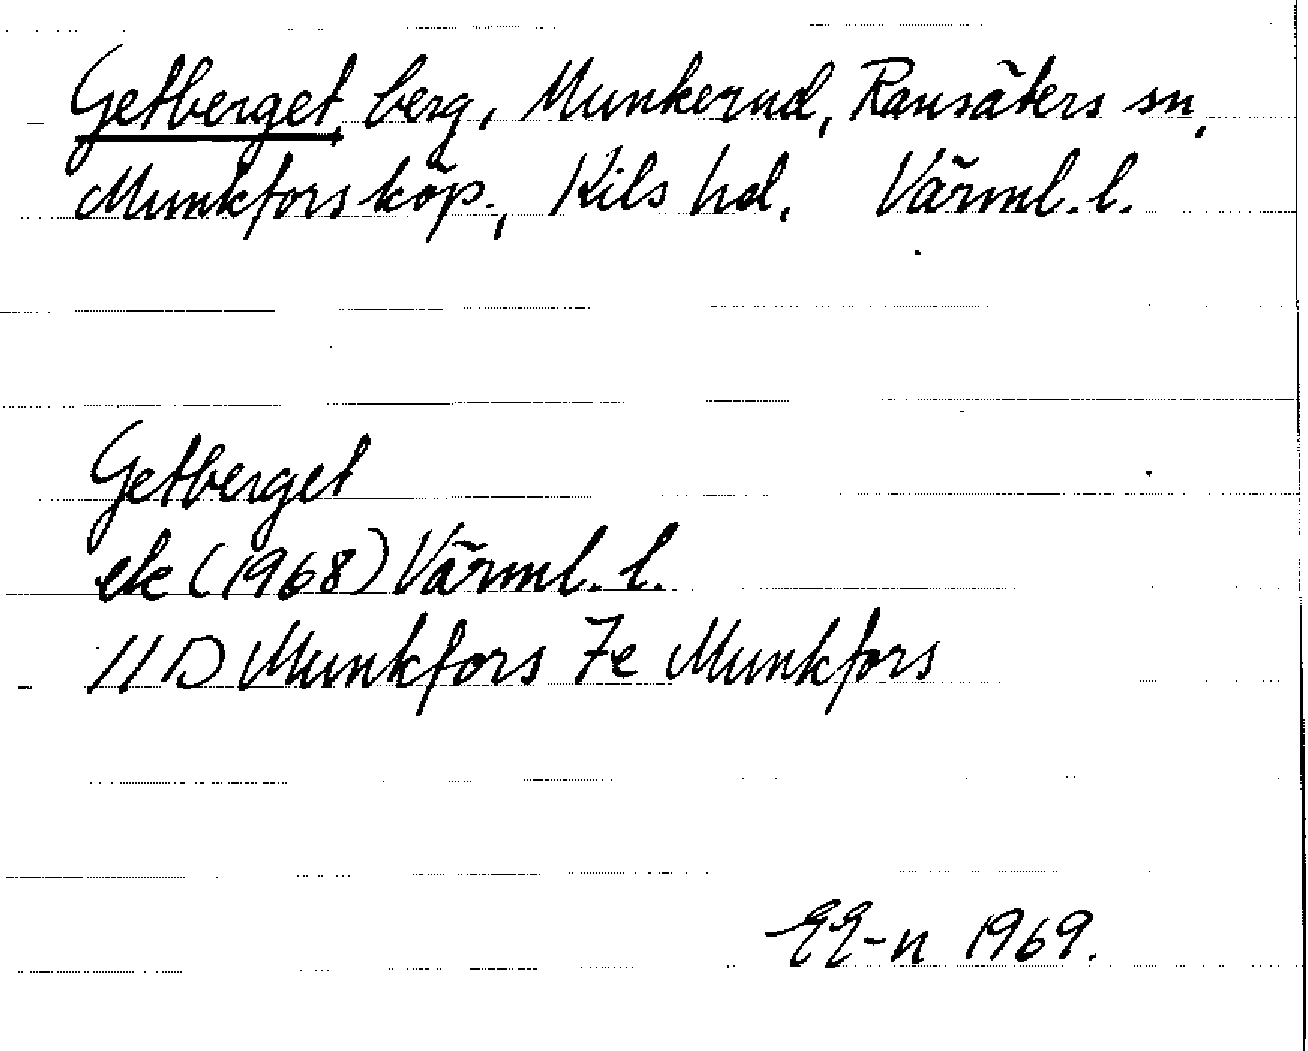 Getberget, berg, Munkerud, Ransäters sn,
Munkfors köp., Kils hd, Värml. l.
Getberget
ek (1968) Värml. l.
11D Munkfors 7e Munkfors
EE-n 1969.